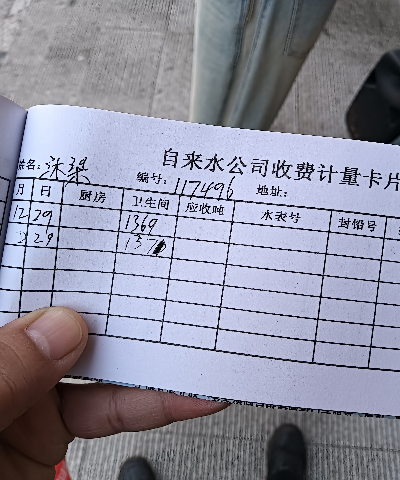 自来水公司收费计量卡片
姓名: 编号: 117496 地址:
月 日 厨房 卫生间 应收吨 水表号 封铅号
12 29 1369
29